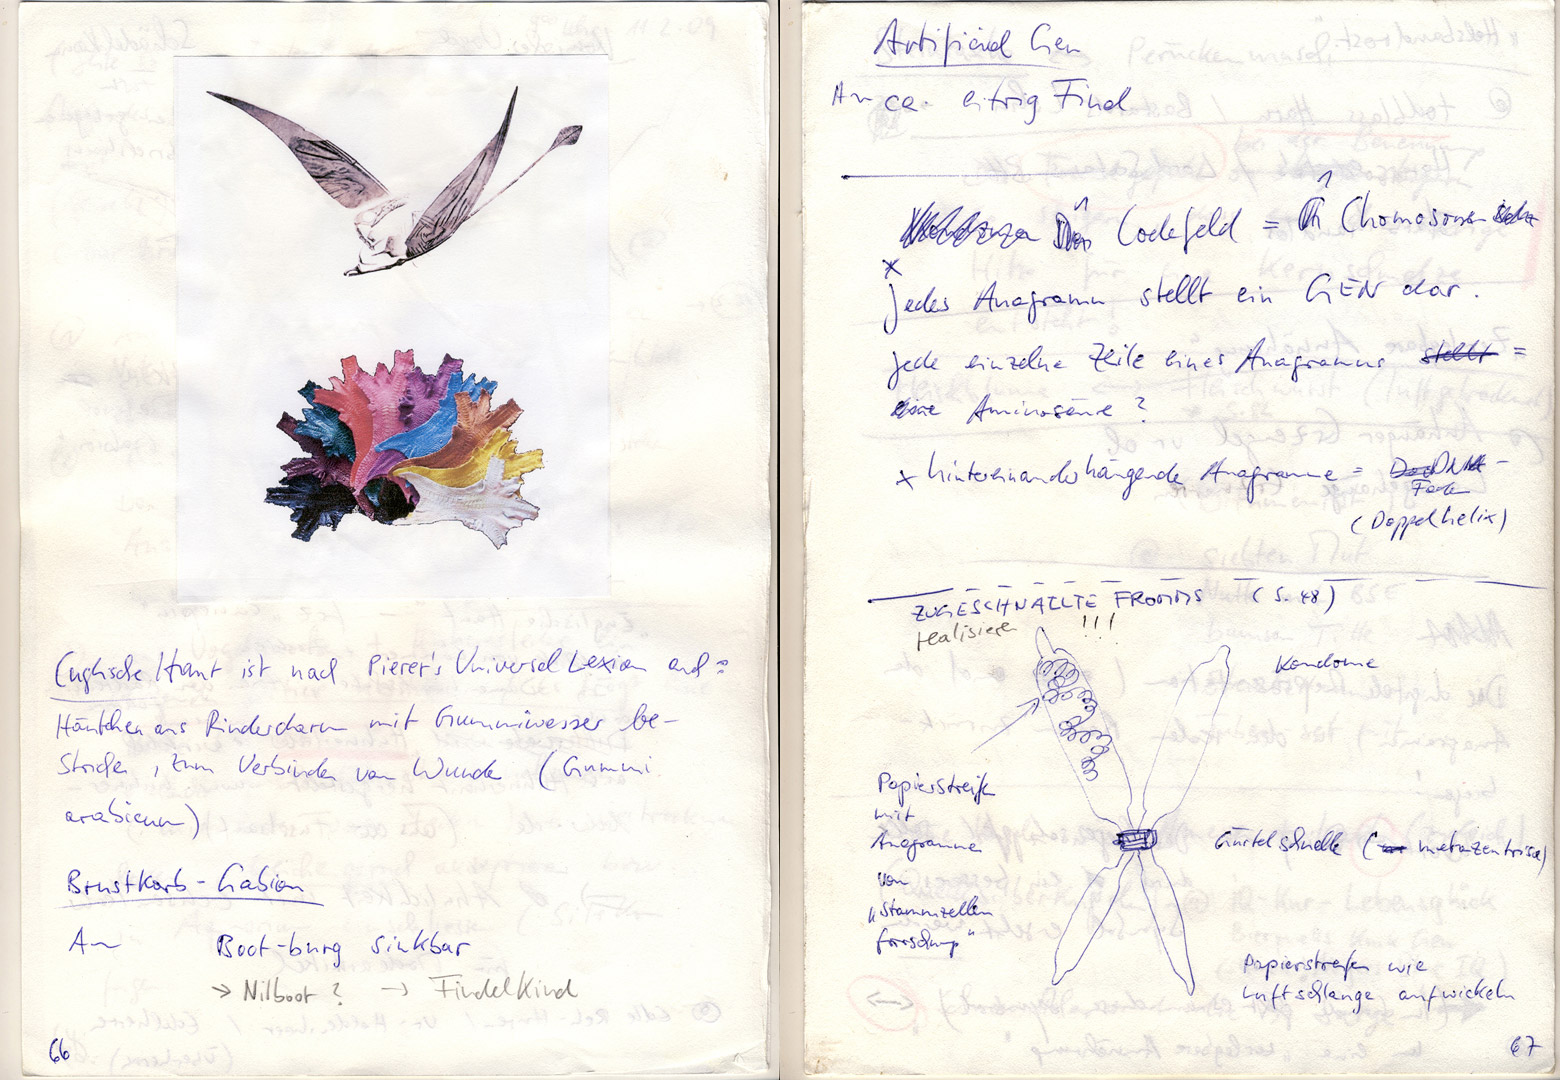 Englische Haut ist nach Pierer's Universal Lexion auch:
Häutchen aus Rinderdarm mit Gummiwasser be-
strichen, zum Verbinden von Wunden (Gummi
arabicum)
Brustkorb-Gabion
An Boot-burg sinkbar
→ Nilboot? → Findelkind
66
Artificial Gen
An ca. eitrig Find
Codefeld = Chomosomen
x
jedes Anagramm stellt ein GEN dar.
jede einzelne Zeile eines Anagramms stellt =
eine Aminosäure?
x hintereinanderhängende Anagramme = DNA-
Faden
(Doppelhelix)
ZUGESCHNALLTE FROMMS (S. 48)
realisieren !!!
Kondome
Papierstreifen
mit
Anagrammen
von
"Stammzellen
forschung"
Gürtelschnalle (metazentrisch)
Papierstreifen wie
Luftschlange aufwickeln
67